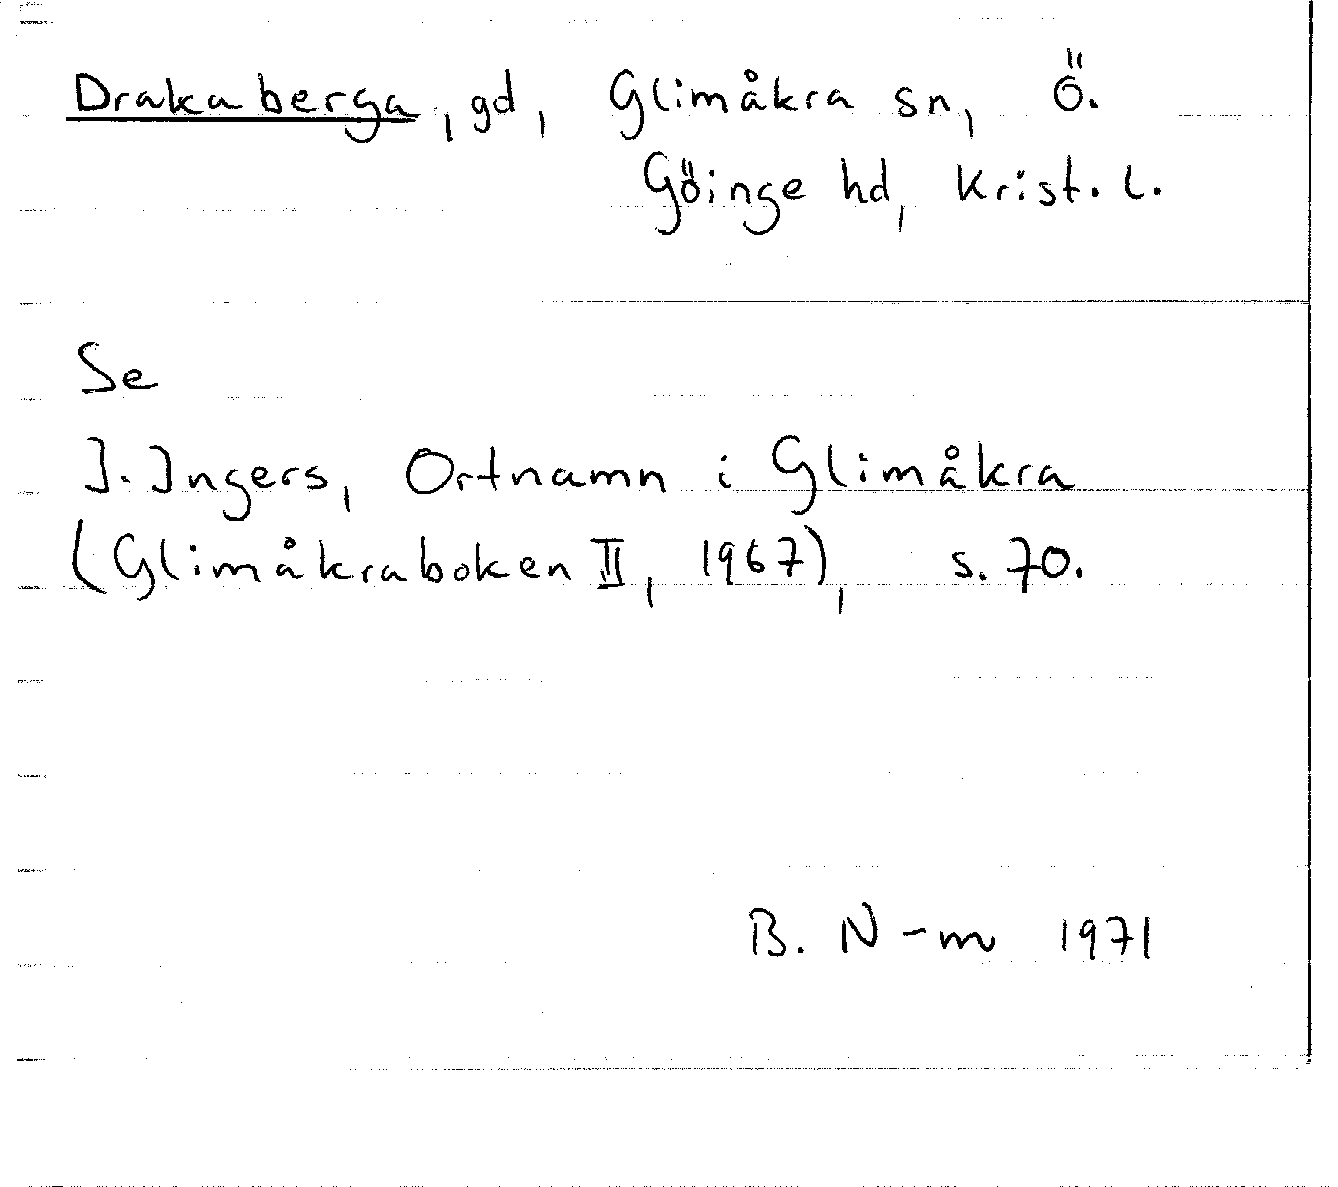 Drakaberga, gd, Glimåkra sn, Ö.
Göinge hd, Krist. l.
Se
I. Ingers, Ortnamn i Glimåkra
(Glimåkraboken II, 1967), s. 70.
B. N-m 1971